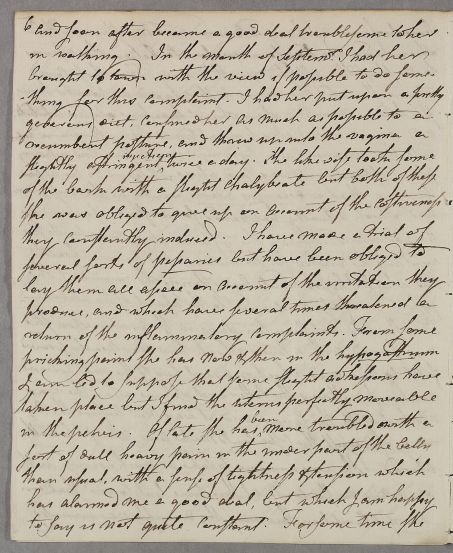 6 and soon after became a good deal troublesome to her
in walking. In the month of Septemr. I had her
brought to town with the view if possible to do some-
thing for this complaint. I had her put upon a pretty
generous diet, confined her as much as possible to a
recumbent posture, and threw up into the vagina a
slightly astringent injection twice a day. She likewise took some
of the bark with a slight Chalybeate but both of these
she was obliged to give up on account of the costiveness
they constantly induced. I have made a trial of
several sorts of pessaries but have been obliged to
lay them all aside on account of the irritation they
produce, and which have several times threatened a
return of the inflammatory complaints. From some
pricking pains she has now & then in the hypogastrium
I am led to suppose that some slight adhesions have
taken place but I find the uterus perfectly moveable
in the pelvis. Of late she has been more troubled with a
sort of dull heavy pain in the under part of the belly
than usual, with a sense of tightness & tension which
has alarmed me a good deal, but which I am happy
to say is not quite constant. For some time she